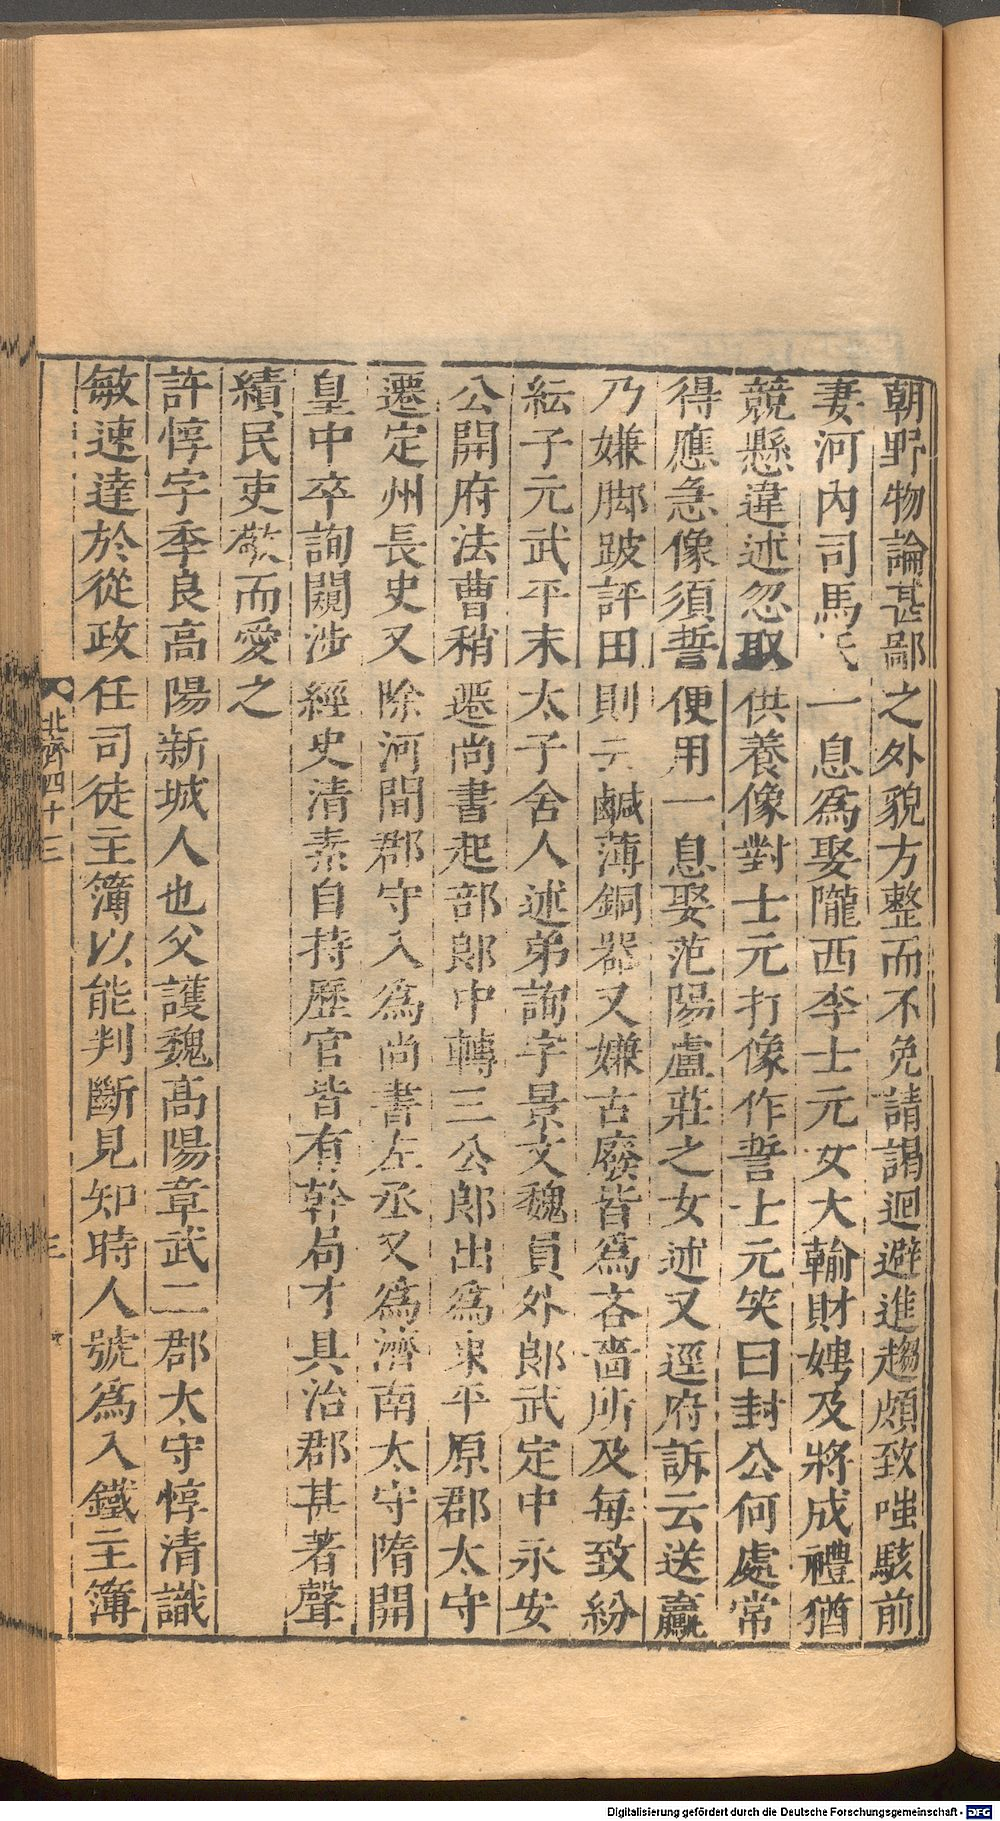 朝野物論甚鄙之外貌方整而不免請謁迴避進趨頗致嗤駭前
妻河內司馬氏一息爲娶隴西李士元女大輸財娉及將成禮猶
競懸違述忽取供養像對士元打像作誓士元笑曰封公何處常
得應急像須誓便用一息娶范陽盧莊之女述又逕府訴云送驘
乃嫌脚跛評田則云鹹薄銅器又嫌古廢皆爲吝嗇所及每致紛
紜子元武平末太子舍人述弟詢字景文魏員外郎武定中永安
公開府法曹稍遷尚書起部郎中轉三公郎出爲東平原郡太守
遷定州長史又除河間郡守入爲尚書左丞又爲濟南太守隋開
皇中卒詢闚涉經史清素自持歷官皆有幹局才具治郡甚著聲
績民吏敬而愛之
許惇字季良高陽新城人也父護魏高陽章武二郡太守惇清識
敏速達於從政任司徒主簿以能判斷見知時人號爲入鐵主簿
北齊四十三
三
Digitalisierung gefördert durch die Deutsche Forschungsgemeinschaft - DFG